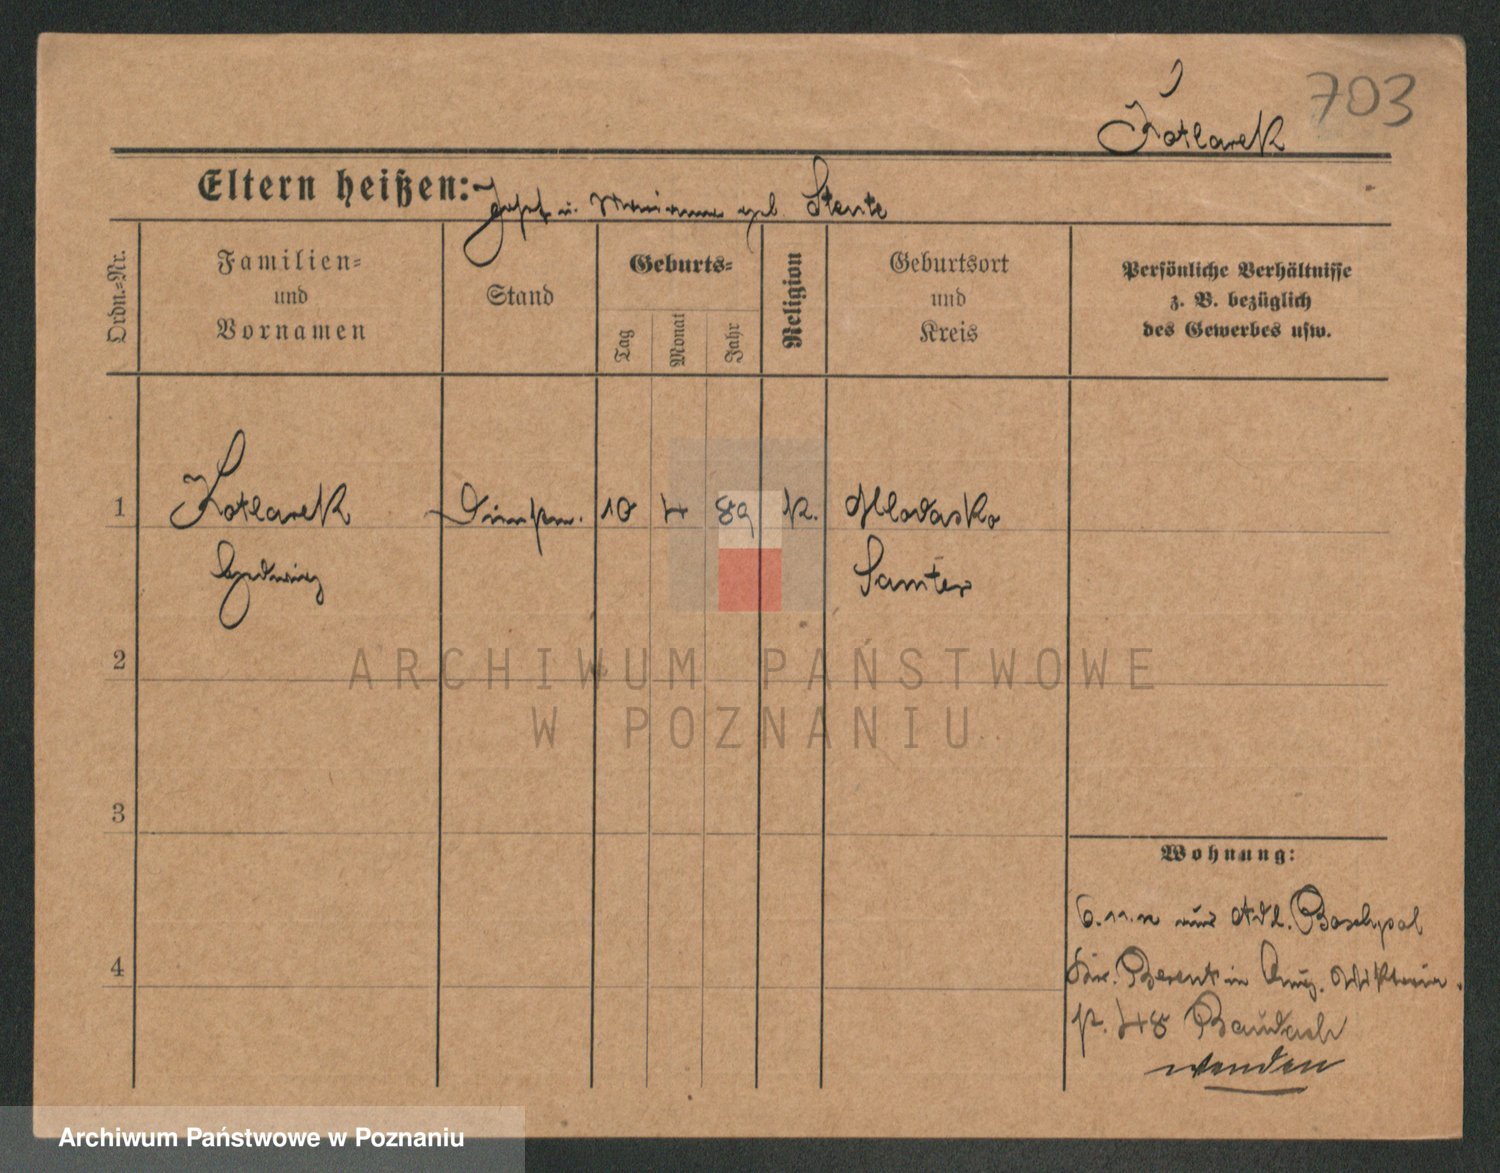 703
Kotlarek
Eltern heißen: Josef u. Marianna geb. Stente
Ordn.=Nr.
Familien=
und
Vornamen
Stand
Geburts=
Tag
Monat
Jahr
Religion
Geburtsort
und
Kreis
Persönliche Verhältnisse
z. B. bezüglich
des Gewerbes usw.
1
Kotlarek
Hedwig
10
4
89
k.
Mlodasko
Samter
2
3
4
Wohnung:
6.11. aus Adl. Boschpol
Kr. Berent in Aug. Viktoria
48 Baudach
wenden
ARCHIWUM PAŃSTWOWE
W POZNANIU
Archiwum Państwowe w Poznaniu